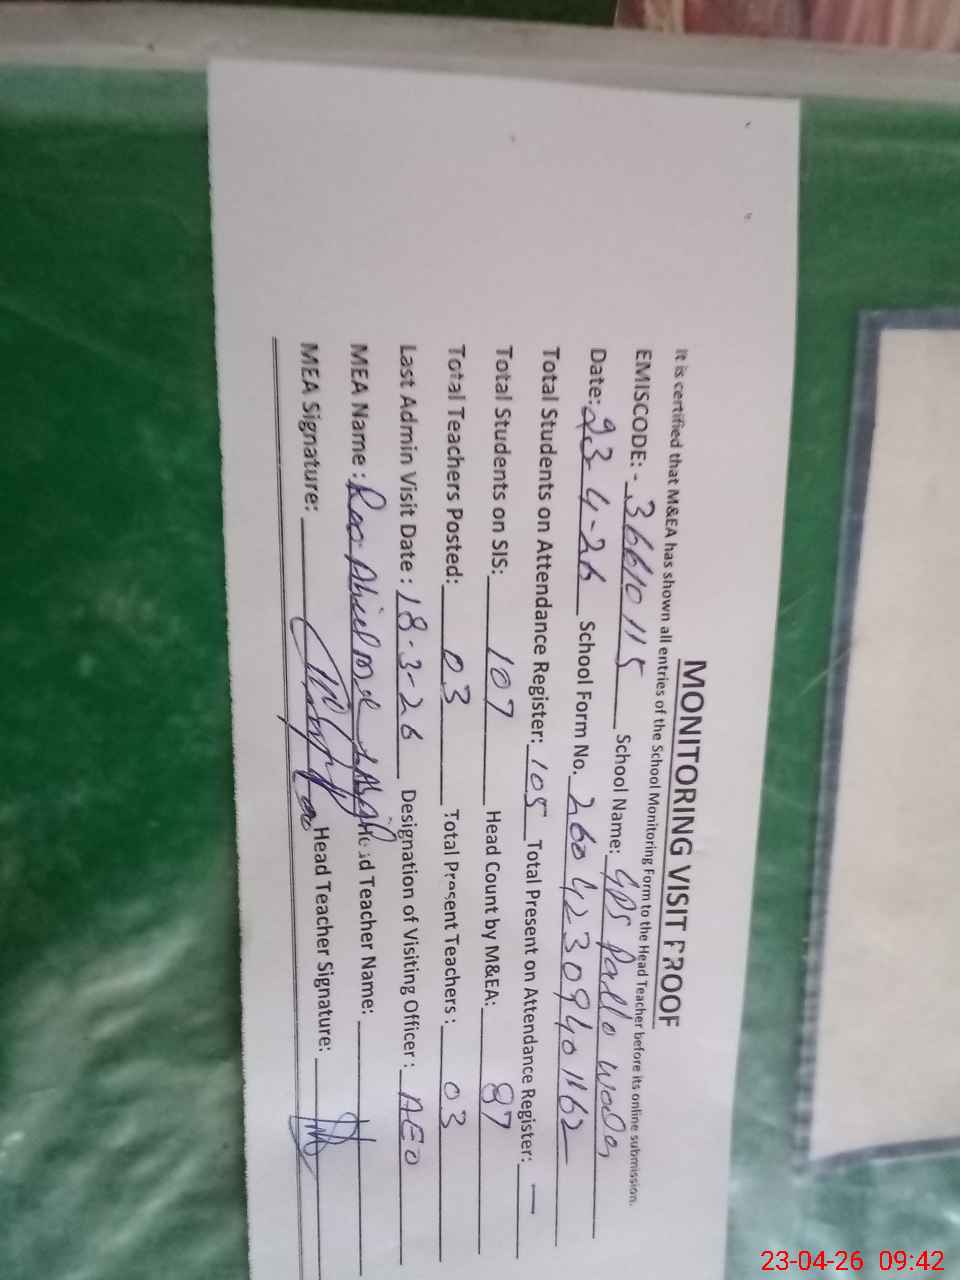 MONITORING VISIT PROOF
It is certified that M&EA has shown all entries of the School Monitoring Form to the Head Teacher before its online submission.
EMISCODE: - 36610115 School Name: GPS
Date: 23-4-26 School Form No. 26042309401162
Total Students on Attendance Register: 105 Total Present on Attendance Register: —
Total Students on SIS: 107 Head Count by M&EA: 87
Total Teachers Posted: 03 Total Present Teachers: 03
Last Admin Visit Date: 18-3-26 Designation of Visiting Officer: AEO
MEA Name: Head Teacher Name:
MEA Signature: Head Teacher Signature:
23-04-26 09:42